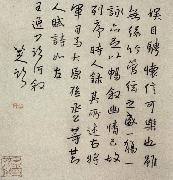 娛目騁懷信可樂也雖
無絲竹管絃之盛一觴一
詠亦足以暢敘幽情已故
列序時人錄其所述右將
軍司馬太原孫丞公等廿六
人賦詩如左
王逸少臨河敘